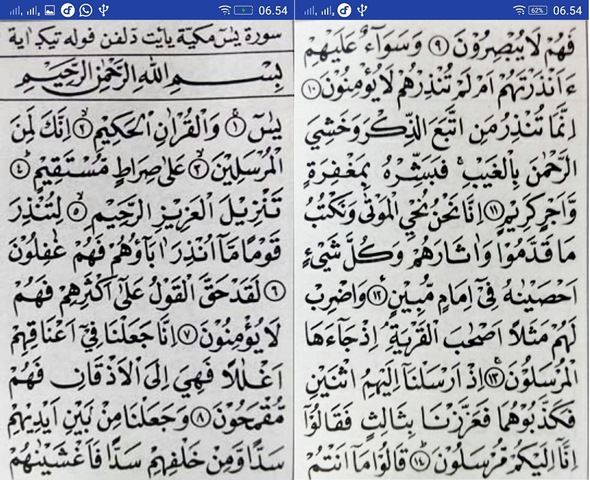 06.54
سورة يسٓ مكية يايت دلفن فوله تيݢ اية
بِسْمِ اللهِ الرَّحْمٰنِ الرَّحِيْمِ
يٰسٓ ﴿١﴾ وَالْقُرْاٰنِ الْحَكِيْمِ ﴿٢﴾ اِنَّكَ لَمِنَ
الْمُرْسَلِيْنَ ﴿٣﴾ عَلٰى صِرَاطٍ مُّسْتَقِيْمٍ ﴿٤﴾
تَنْزِيْلَ الْعَزِيْزِ الرَّحِيْمِ ﴿٥﴾ لِتُنْذِرَ
قَوْمًا مَّآ اُنْذِرَ اٰبَاؤُهُمْ فَهُمْ غٰفِلُوْنَ
﴿٦﴾ لَقَدْ حَقَّ الْقَوْلُ عَلٰٓى اَكْثَرِهِمْ فَهُمْ
لَا يُؤْمِنُوْنَ ﴿٧﴾ اِنَّا جَعَلْنَا فِيْٓ اَعْنَاقِهِمْ
اَغْلٰلًا فَهِيَ اِلَى الْاَذْقَانِ فَهُمْ
مُّقْمَحُوْنَ ﴿٨﴾ وَجَعَلْنَا مِنْ بَيْنِ اَيْدِيْهِمْ
سَدًّا وَّمِنْ خَلْفِهِمْ سَدًّا فَاَغْشَيْنٰهُمْ
62% 06.54
فَهُمْ لَا يُبْصِرُوْنَ ﴿٩﴾ وَسَوَآءٌ عَلَيْهِمْ
ءَاَنْذَرْتَهُمْ اَمْ لَمْ تُنْذِرْهُمْ لَا يُؤْمِنُوْنَ ﴿١٠﴾
اِنَّمَا تُنْذِرُ مَنِ اتَّبَعَ الذِّكْرَ وَخَشِيَ
الرَّحْمٰنَ بِالْغَيْبِ فَبَشِّرْهُ بِمَغْفِرَةٍ
وَّاَجْرٍ كَرِيْمٍ ﴿١١﴾ اِنَّا نَحْنُ نُحْيِ الْمَوْتٰى وَنَكْتُبُ
مَا قَدَّمُوْا وَاٰثَارَهُمْ وَكُلَّ شَيْءٍ
اَحْصَيْنٰهُ فِيْٓ اِمَامٍ مُّبِيْنٍ ﴿١٢﴾ وَاضْرِبْ
لَهُمْ مَّثَلًا اَصْحٰبَ الْقَرْيَةِ اِذْ جَآءَهَا
الْمُرْسَلُوْنَ ﴿١٣﴾ اِذْ اَرْسَلْنَآ اِلَيْهِمُ اثْنَيْنِ
فَكَذَّبُوْهُمَا فَعَزَّزْنَا بِثَالِثٍ فَقَالُوْٓا
اِنَّآ اِلَيْكُمْ مُّرْسَلُوْنَ ﴿١٤﴾ قَالُوْا مَآ اَنْتُمْ